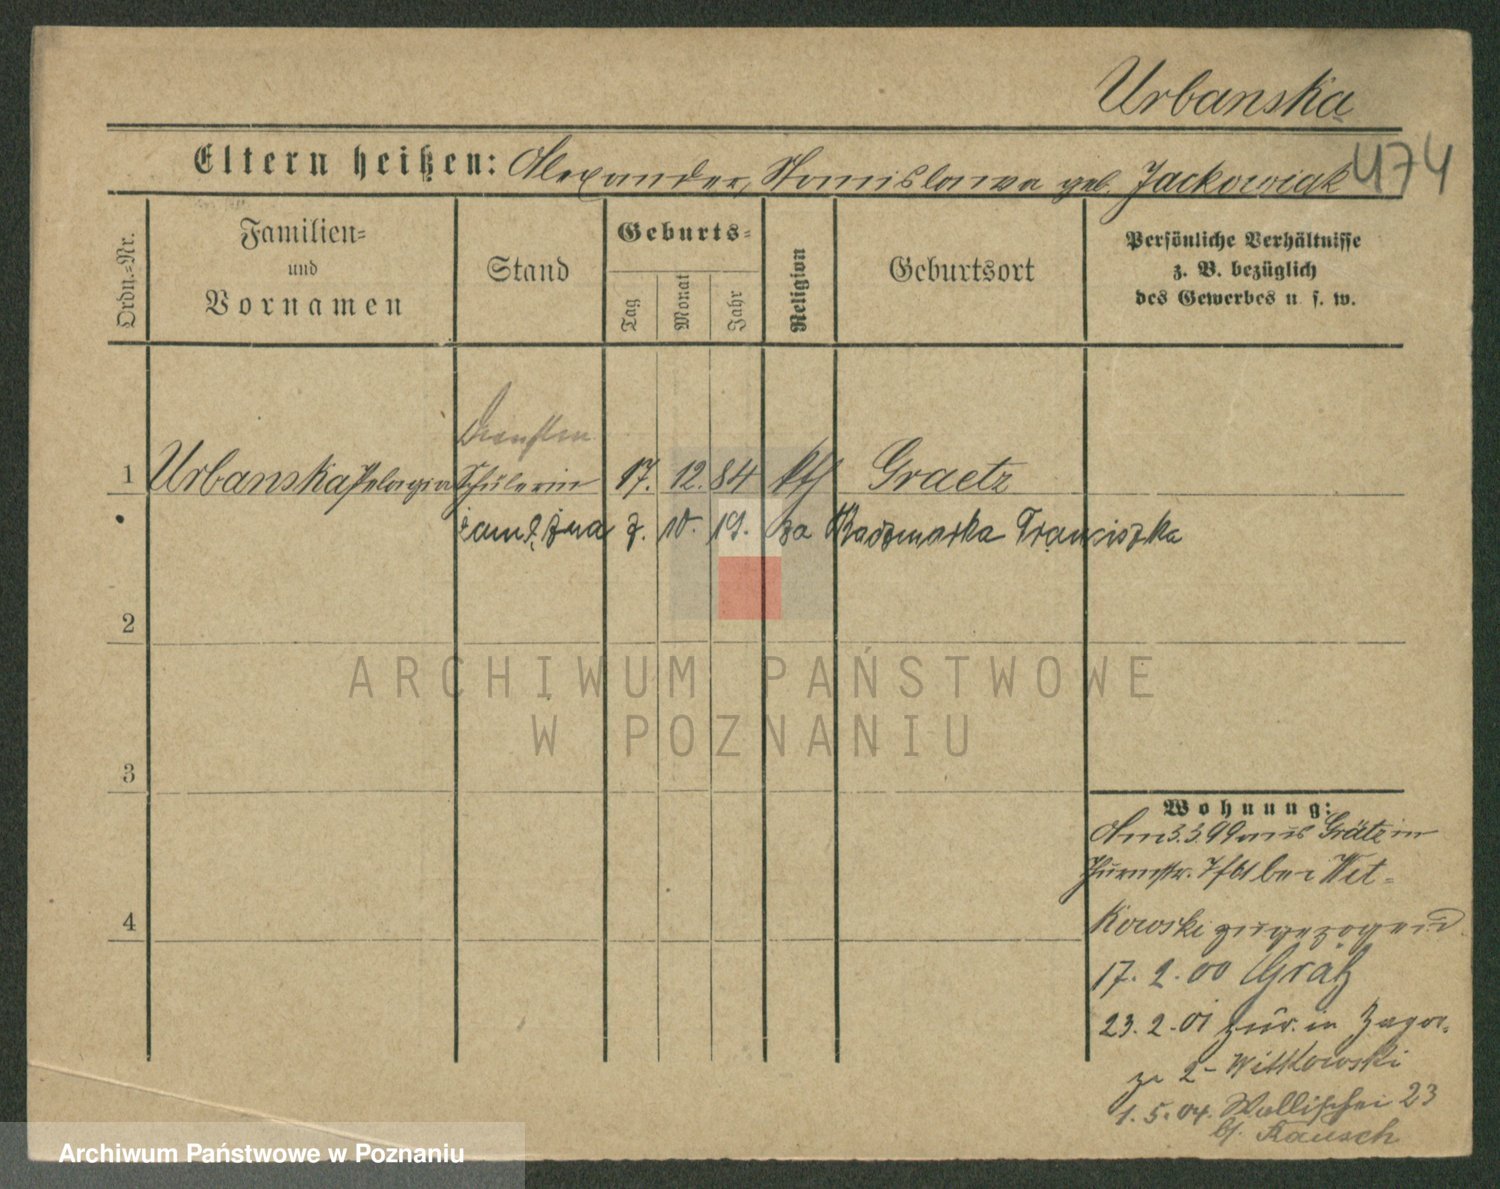 Urbanska
Eltern heißen: Alexander, Stanislawa geb. Jackowiak
474
Ordn.-Nr.
Familien-
und
Vornamen
Stand
Geburts-
Tag
Monat
Jahr
Religion
Geburtsort
Persönliche Verhältnisse
z. B. bezüglich
des Gewerbes u. s. w.
1 Urbanska Pelagia Schülerin 17. 12. 84 kth Graetz
zamężna z. 10. 19. za Kaczmarka Franciszka
2
3
4
ARCHIWUM PAŃSTWOWE
W POZNANIU
Wohnung:
Am 3.3.99 aus Grätz in
Thurmstr. 7 bei Wit-
kowski zugezogen
17. 2. 00 Grätz
23. 2. 01 zur. in
2 - Wittkowski
1. 5. 04. Wallischei 23
b/. Rausch
Archiwum Państwowe w Poznaniu